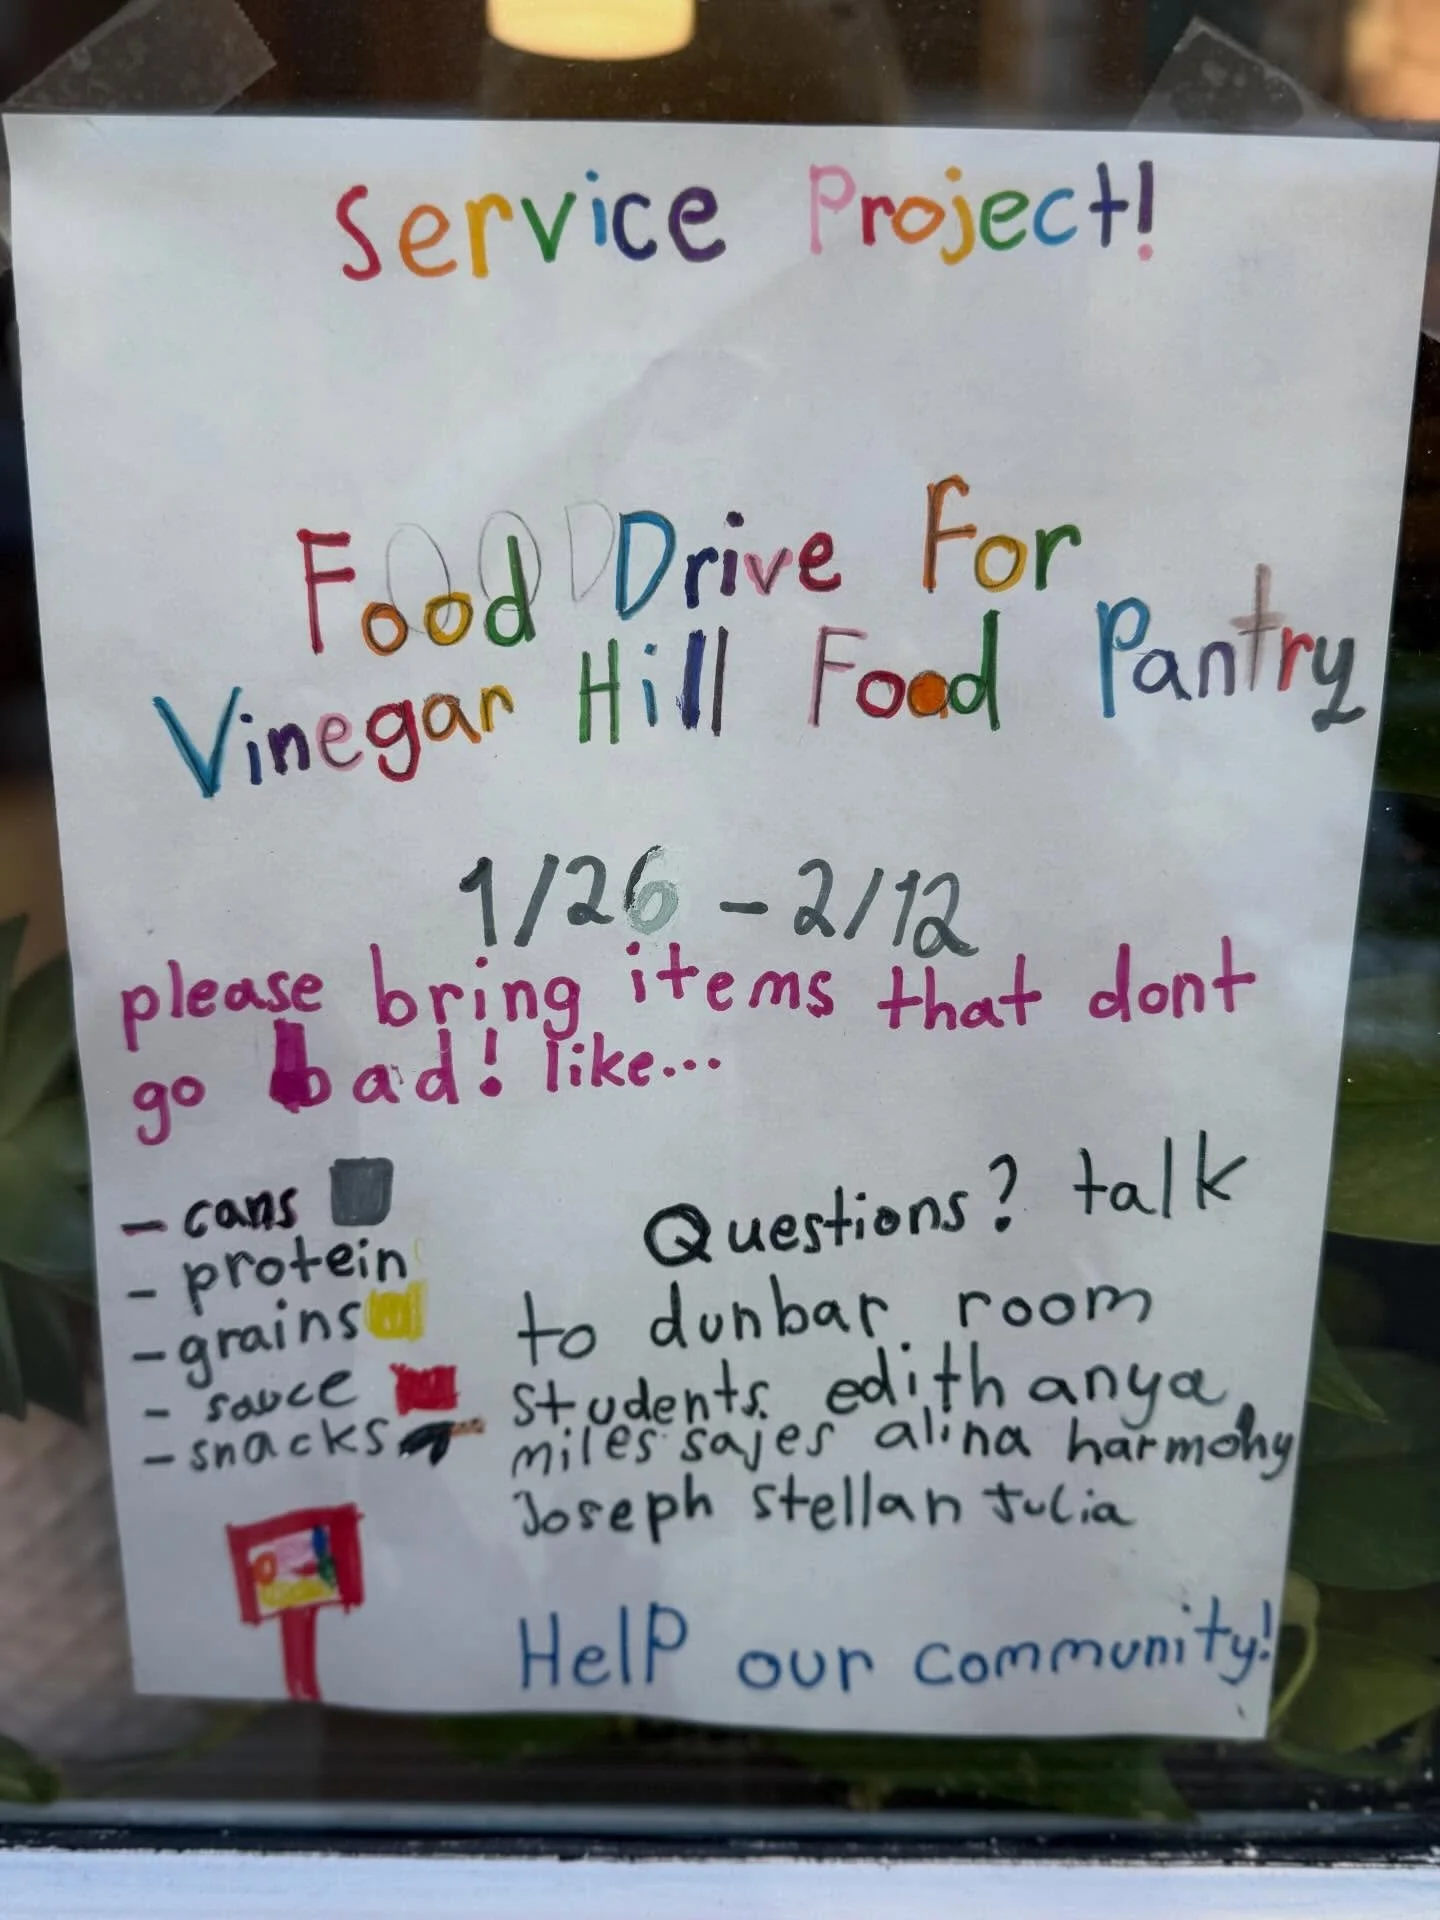 Service Project!
Food Drive For
Vinegar Hill Food Pantry
1/26 - 2/12
please bring items that dont
go bad! like...
- cans
- protein
- grains
- sauce
- snacks
Questions? talk
to dunbar room
students. edith anya
miles sajes alina harmony
Joseph stellan Julia
HelP our community!